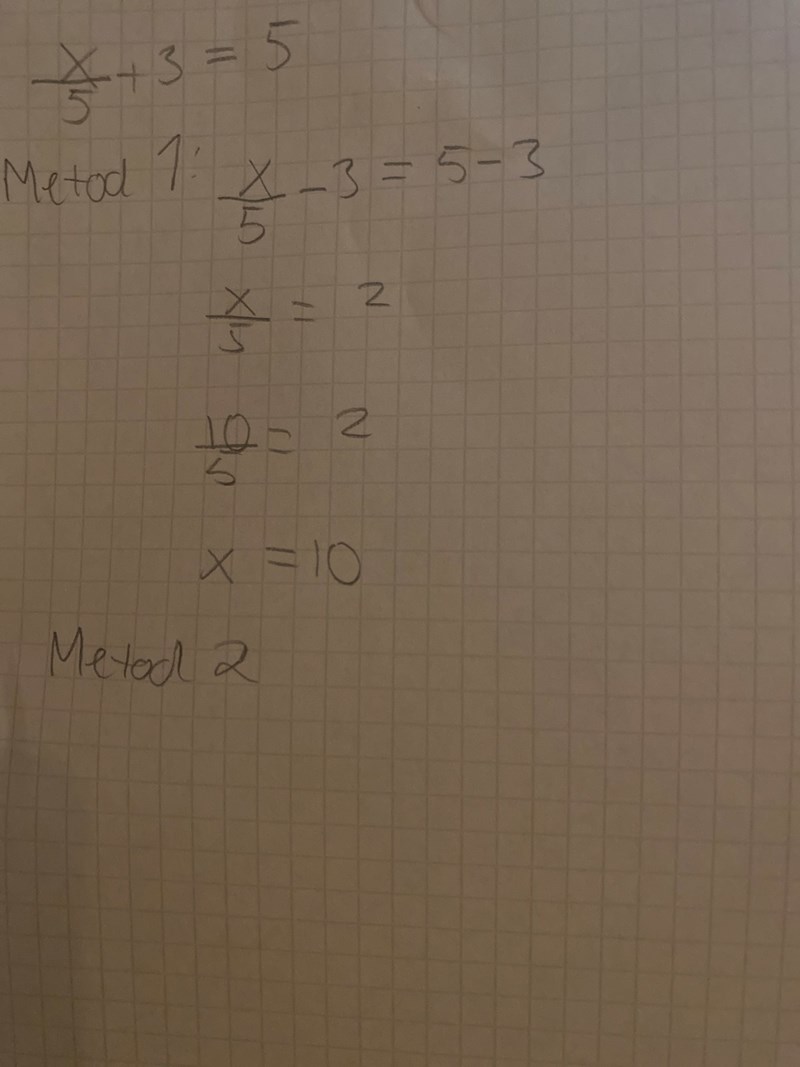 x/5 + 3 = 5
Metod 1: x/5 - 3 = 5 - 3
x/5 = 2
10/5 = 2
x = 10
Metod 2